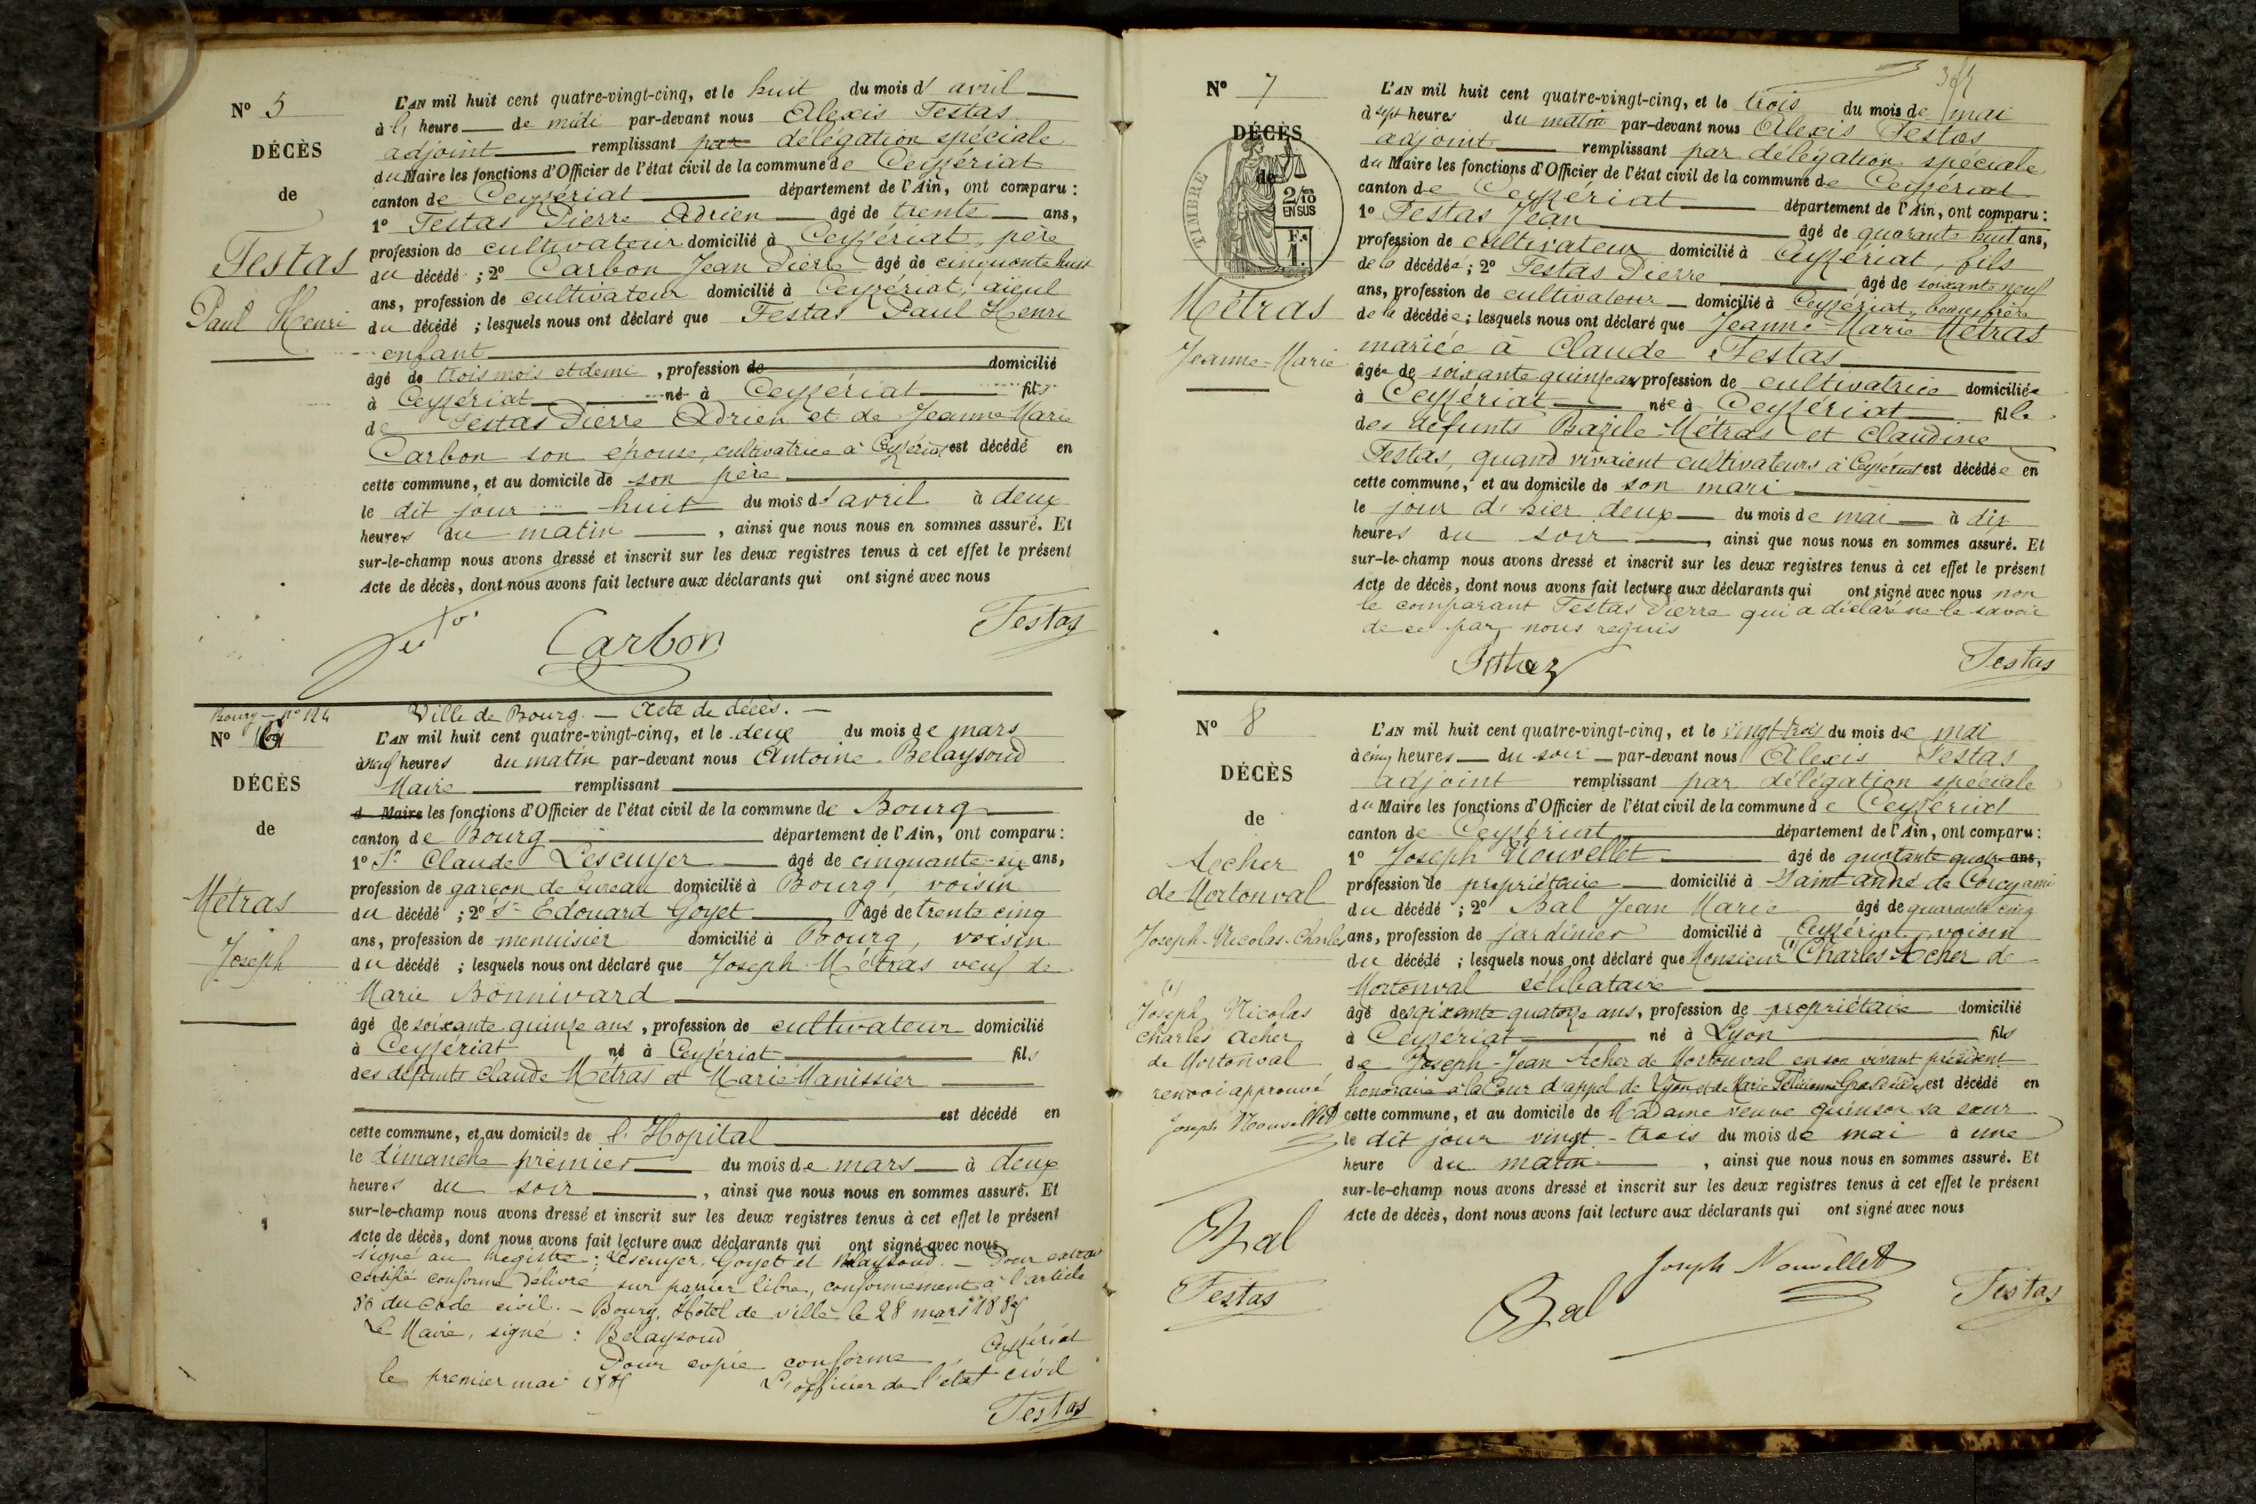 N° 5
DÉCÈS
de
Festas
Paul Henri
L'AN mil huit cent quatre-vingt-cinq, et le huit du mois d'avril
à l' heure de midi par-devant nous Alexis Festas
adjoint remplissant par délégation spéciale
du Maire les fonctions d'Officier de l'état civil de la commune de Ceyzériat
canton de Ceyzériat département de l'Ain, ont comparu :
1° Festas Pierre Adrien âgé de trente ans,
profession de cultivateur domicilié à Ceyzériat, père
du décédé ; 2° Carbon Jean Pierre âgé de cinquante huit
ans, profession de cultivateur domicilié à Ceyzériat, aieul
du décédé ; lesquels nous ont déclaré que Festas Paul Henri
enfant
âgé de trois mois et demi, profession de domicilié
à Ceyzériat né à Ceyzériat fils
de Festas Pierre Adrien et de Jeanne Marie
Carbon son épouse, cultivatrice à Ceyzériat est décédé en
cette commune, et au domicile de son père
le dit jour huit du mois d'avril à deux
heures du matin, ainsi que nous nous en sommes assuré. Et
sur-le-champ nous avons dressé et inscrit sur les deux registres tenus à cet effet le présent
Acte de décès, dont nous avons fait lecture aux déclarants qui ont signé avec nous
Carbon
Festas
Bourg - n° 124
N° 6
DÉCÈS
de
Métras
Joseph
Ville de Bourg. — Acte de décès. —
L'AN mil huit cent quatre-vingt-cinq, et le deux du mois de mars
à neuf heures du matin par-devant nous Antoine Belaysoud
Maire remplissant
d Maire les fonctions d'Officier de l'état civil de la commune de Bourg
canton de Bourg département de l'Ain, ont comparu :
1° Sr Claude Lescuyer âgé de cinquante-six ans,
profession de garçon de bureau domicilié à Bourg, voisin
du décédé ; 2° Sr Edouard Goyet âgé de trente cinq
ans, profession de menuisier domicilié à Bourg, voisin
du décédé ; lesquels nous ont déclaré que Joseph Métras veuf de
Marie Bonnivard
âgé de soixante quinze ans, profession de cultivateur domicilié
à Ceyzériat né à Ceyzériat fils
des defunts Claude Métras et Marie Manissier
est décédé en
cette commune, et au domicile de l'Hopital
le dimanche premier du mois de mars à deux
heures du soir, ainsi que nous nous en sommes assuré. Et
sur-le-champ nous avons dressé et inscrit sur les deux registres tenus à cet effet le présent
Acte de décès, dont nous avons fait lecture aux déclarants qui ont signé avec nous
signé au registre : Lescuyer, Goyet et Belaysoud. — Pour extrait
certifié conforme délivré sur papier libre, conformement à l'article
80 du code civil. — Bourg, Hôtel de ville le 28 mars 1885
Le Maire, signé : Belaysoud
Pour copie conforme Ceyzériat
le premier mai 1885 L'officier de l'état civil
Festas
N° 7
DÉCÈS
de
TIMBRE
2/10
EN SUS
Métras
Jeanne-Marie
L'AN mil huit cent quatre-vingt-cinq, et le trois du mois de mai
à sept heures du matin par-devant nous Alexis Festas
adjoint remplissant par délégation spéciale
du Maire les fonctions d'Officier de l'état civil de la commune de Ceyzériat
canton de Ceyzériat département de l'Ain, ont comparu :
1° Festas Jean âgé de quarante huit ans,
profession de cultivateur domicilié à Ceyzériat, fils
de la décédée ; 2° Festas Pierre âgé de soixante neuf
ans, profession de cultivateur domicilié à Ceyzériat, beau frère
de la décédée ; lesquels nous ont déclaré que Jeanne-Marie Métras
mariée à Claude Festas
âgée de soixante quinze ans profession de cultivatrice domiciliée
à Ceyzériat née à Ceyzériat fille
des défunts Bazile Métras et Claudine
Festas, quand vivaient cultivateurs à Ceyzériat est décédée en
cette commune, et au domicile de son mari
le jour d'hier deux du mois de mai à dix
heures du soir, ainsi que nous nous en sommes assuré. Et
sur-le-champ nous avons dressé et inscrit sur les deux registres tenus à cet effet le présent
Acte de décès, dont nous avons fait lecture aux déclarants qui ont signé avec nous non
le comparant Festas Pierre qui a déclaré ne le savoir
de ce par nous requis
Festas
N° 8
DÉCÈS
de
Acher
de Mortonval
Joseph-Nicolas-Charles
Joseph Nicolas
Charles Acher
de Mortonval
renvoi approuvé
Joseph Nouvellet
Bal
Festas
L'AN mil huit cent quatre-vingt-cinq, et le vingt-trois du mois de mai
à cinq heures du soir par-devant nous Alexis Festas
adjoint remplissant par délégation spéciale
du Maire les fonctions d'Officier de l'état civil de la commune de Ceyzériat
canton de Ceyzériat département de l'Ain, ont comparu :
1° Joseph Nouvellet âgé de quarante quatre ans,
profession de propriétaire domicilié à Saint andré de Corcy ami
du décédé ; 2° Bal Jean Marie âgé de quarante cinq
ans, profession de jardinier domicilié à Ceyzériat voisin
du décédé ; lesquels nous ont déclaré que Monsieur Charles Acher de
Mortonval célibataire
âgé de soixante quatorze ans, profession de propriétaire domicilié
à Ceyzériat né à Lyon fils
de Joseph-Jean Acher de Mortonval en son vivant président
honoraire à la Cour d'appel de Lyon, et de Marie est décédé en
cette commune, et au domicile de Madame veuve quinson sa sœur
le dit jour vingt-trois du mois de mai à une
heure du matin, ainsi que nous nous en sommes assuré. Et
sur-le-champ nous avons dressé et inscrit sur les deux registres tenus à cet effet le présent
Acte de décès, dont nous avons fait lecture aux déclarants qui ont signé avec nous
Joseph Nouvellet
Bal
Festas